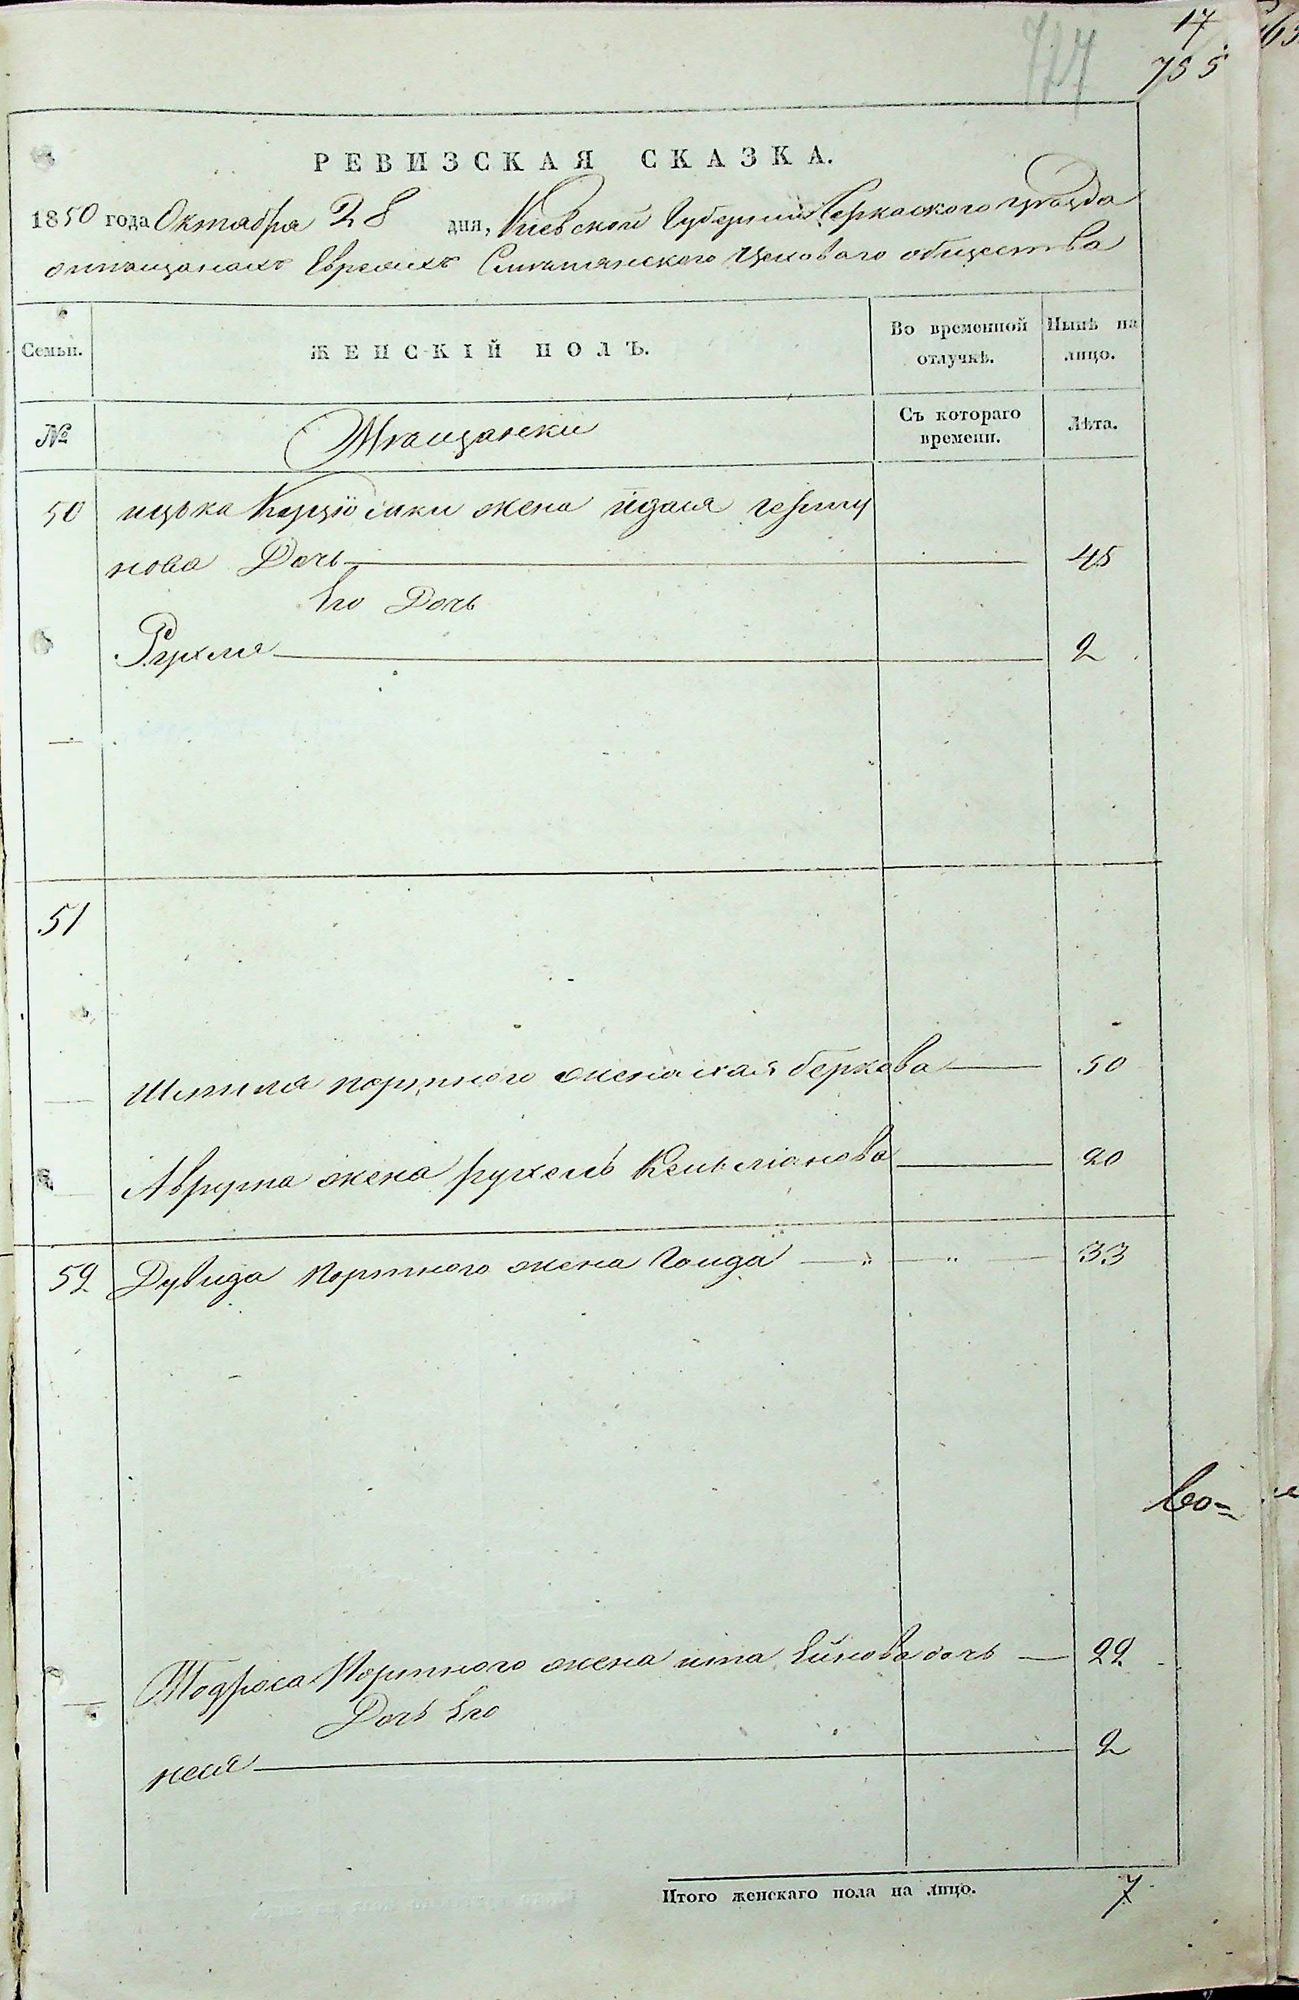 17
727
755
РЕВИЗСКАЯ СКАЗКА.
1850 года Октября 28 дня, Киевской Губернии Черкаского уѣзда
о мѣщанахъ Евреяхъ Смѣлянского Цеховаго общества
Семьи.
ЖЕНСКІЙ ПОЛЪ.
Во временной отлучкѣ.
Нынѣ на лицо.
№
Мѣщанки
Съ котораго времени.
Лѣта.
50 ицька жена идася гершу
нова Дочь 45
Его Дочь
Рухля 2
51
Шмиля портного жена хая беркова 50
Аврума жена рухель Кельманова 20
52 Дувида Портного жена Гоида " " 33
Во=
Тодроса Портного жена ита Ейнова дочь 22
Дочь Его
неся 2
Итого женскаго пола на лицо. 7